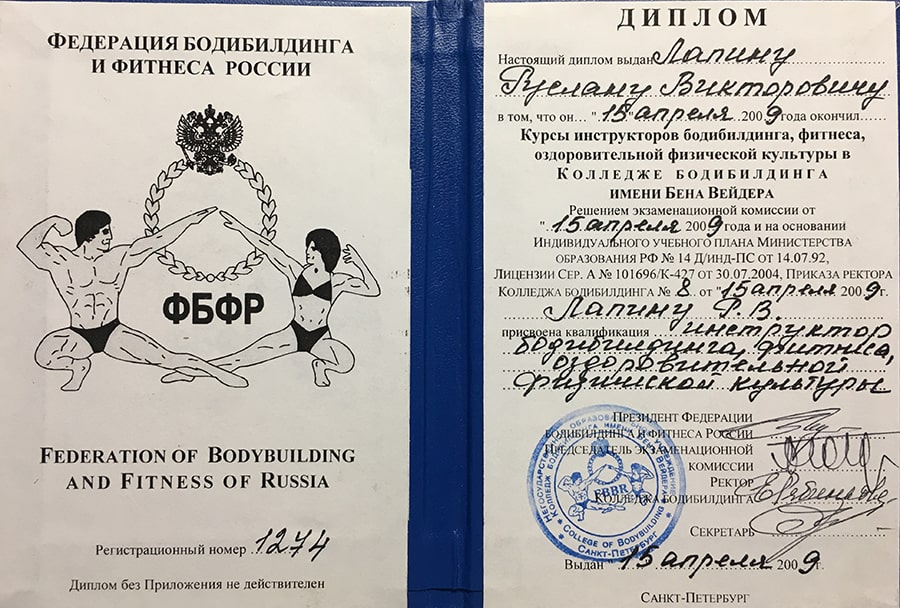 ФЕДЕРАЦИЯ БОДИБИЛДИНГА
И ФИТНЕСА РОССИИ
ФБФР
FEDERATION OF BODYBUILDING
AND FITNESS OF RUSSIA
Регистрационный номер 1274
Диплом без Приложения не действителен
ДИПЛОМ
Настоящий диплом выдан Лапину
Руслану Викторовичу
в том, что он... "15" апреля 2009 года окончил
Курсы инструкторов бодибилдинга, фитнеса,
оздоровительной физической культуры в
КОЛЛЕДЖЕ БОДИБИЛДИНГА
ИМЕНИ БЕНА ВЕЙДЕРА
Решением экзаменационной комиссии от
"15 апреля 2009 года и на основании
ИНДИВИДУАЛЬНОГО УЧЕБНОГО ПЛАНА МИНИСТЕРСТВА
ОБРАЗОВАНИЯ РФ № 14 Д/ИНД-ПС ОТ 14.07.92,
ЛИЦЕНЗИИ СЕР. А № 101696/К-427 ОТ 30.07.2004, ПРИКАЗА РЕКТОРА
КОЛЛЕДЖА БОДИБИЛДИНГА № 8 от "15 апреля 2009г.
Лапину Р. В.
присвоена квалификация инструктор
бодибилдинга, фитнеса,
оздоровительной
физической культуры
ПРЕЗИДЕНТ ФЕДЕРАЦИИ
БОДИБИЛДИНГА И ФИТНЕСА РОССИИ
ПРЕДСЕДАТЕЛЬ ЭКЗАМЕНАЦИОННОЙ
КОМИССИИ
РЕКТОР
КОЛЛЕДЖА БОДИБИЛДИНГА
СЕКРЕТАРЬ
FBBR
COLLEGE OF BODYBUILDING
САНКТ-ПЕТЕРБУРГ
Выдан 15 апреля 2009г.
САНКТ-ПЕТЕРБУРГ